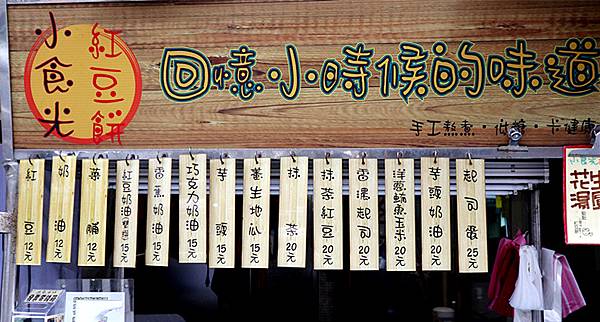 小食光
紅豆餅
回憶小時候的味道
手工熬煮・低糖・卡健康
紅豆 12元
奶油 12元
菜脯 12元
紅豆奶油雙拼 15元
香蕉奶油 15元
巧克力奶油 15元
芋頭 15元
養生地瓜 15元
抹茶 20元
抹茶紅豆 20元
雪濃起司 20元
洋蔥鮪魚玉米 20元
芋頭奶油 20元
起司蛋 25元
小食光
花生
湯圓